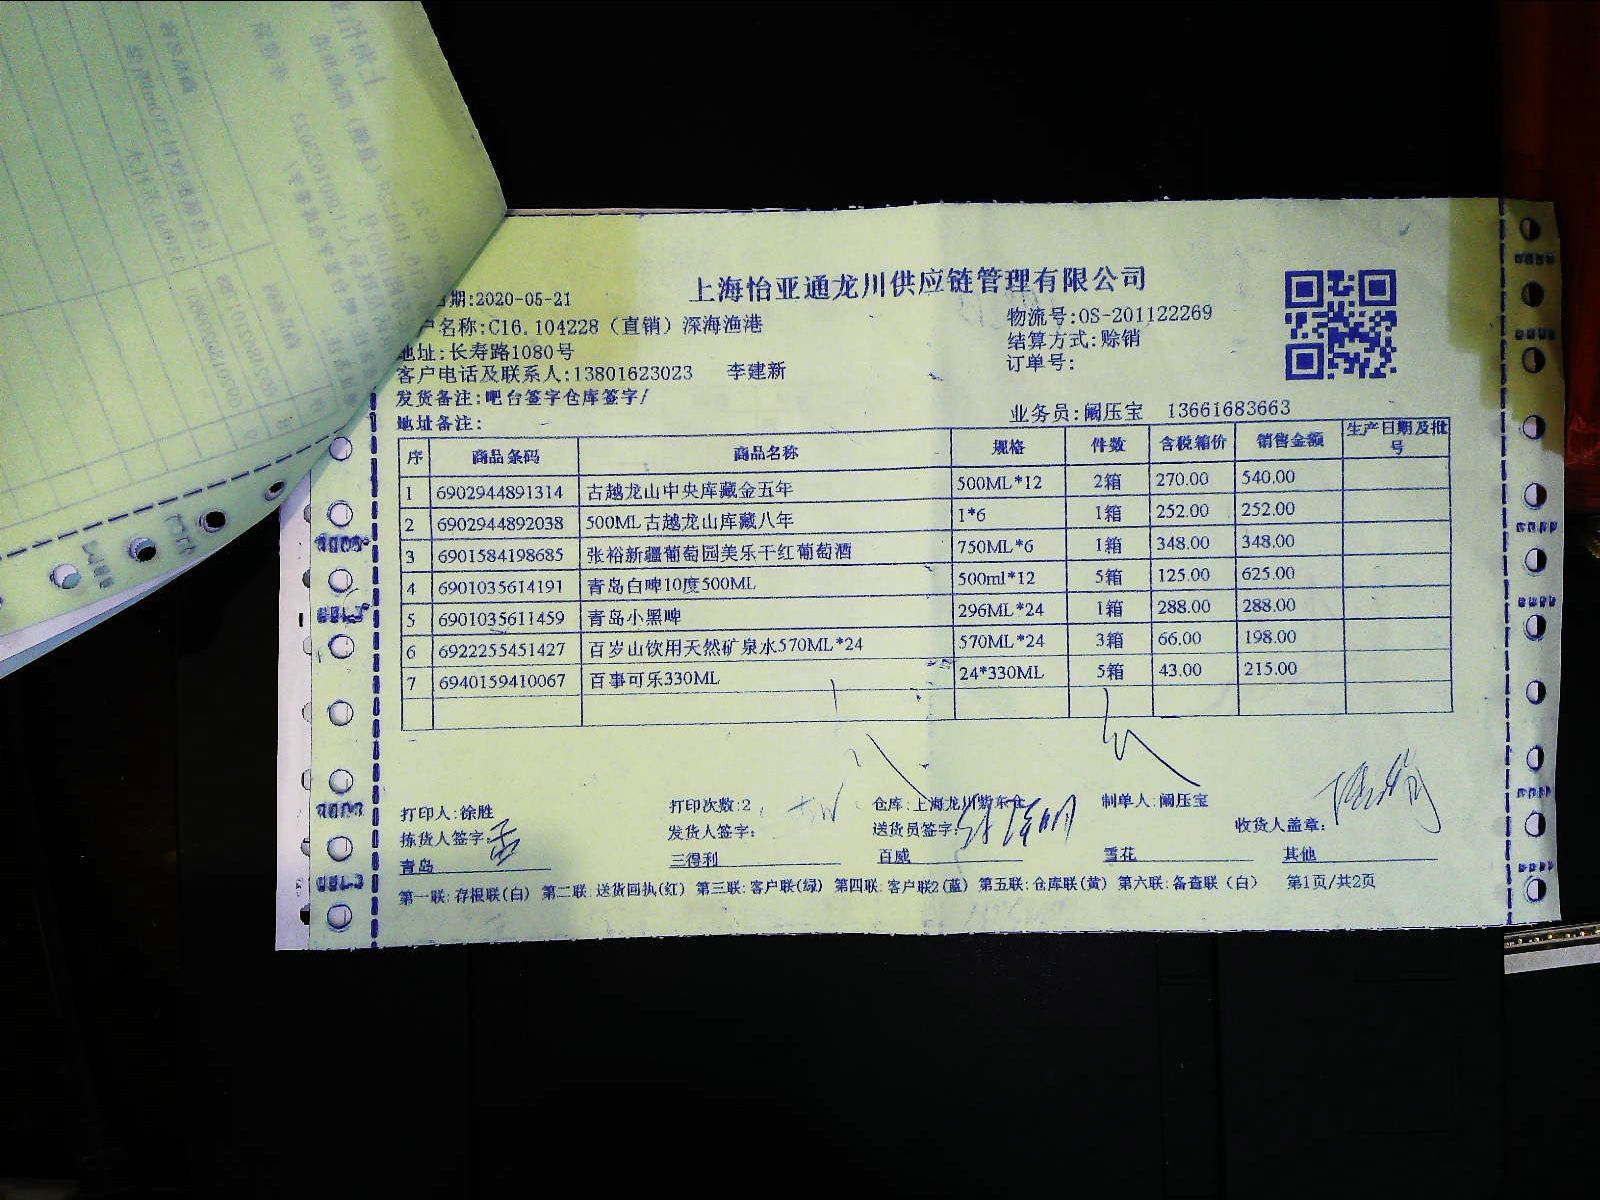 上海怡亚通龙川供应链管理有限公司
期:2020-05-21
户名称:C16.104228（直销）深海渔港
物流号:OS-201122269
地址:长寿路1080号
结算方式:赊销
客户电话及联系人:13801623023 李建新
订单号:
发货备注:吧台签字仓库签字/
地址备注:
业务员:阚压宝 13661683663
序 商品条码 商品名称 规格 件数 含税箱价 销售金额 生产日期及批号
1 6902944891314 古越龙山中央库藏金五年 500ML*12 2箱 270.00 540.00
2 6902944892038 500ML古越龙山库藏八年 1*6 1箱 252.00 252.00
3 6901584198685 张裕新疆葡萄园美乐干红葡萄酒 750ML*6 1箱 348.00 348.00
4 6901035614191 青岛白啤10度500ML 500ml*12 5箱 125.00 625.00
5 6901035611459 青岛小黑啤 296ML*24 1箱 288.00 288.00
6 6922255451427 百岁山饮用天然矿泉水570ML*24 570ML*24 3箱 66.00 198.00
7 6940159410067 百事可乐330ML 24*330ML 5箱 43.00 215.00
打印人:徐胜 打印次数:2 仓库:上海龙川紫东仓 制单人:阚压宝
拣货人签字: 发货人签字: 送货员签字: 收货人盖章:
青岛 三得利 百威 雪花 其他
第一联:存根联(白) 第二联:送货回执(红) 第三联:客户联(绿) 第四联:客户联2(蓝) 第五联:仓库联(黄) 第六联:备查联(白) 第1页/共2页